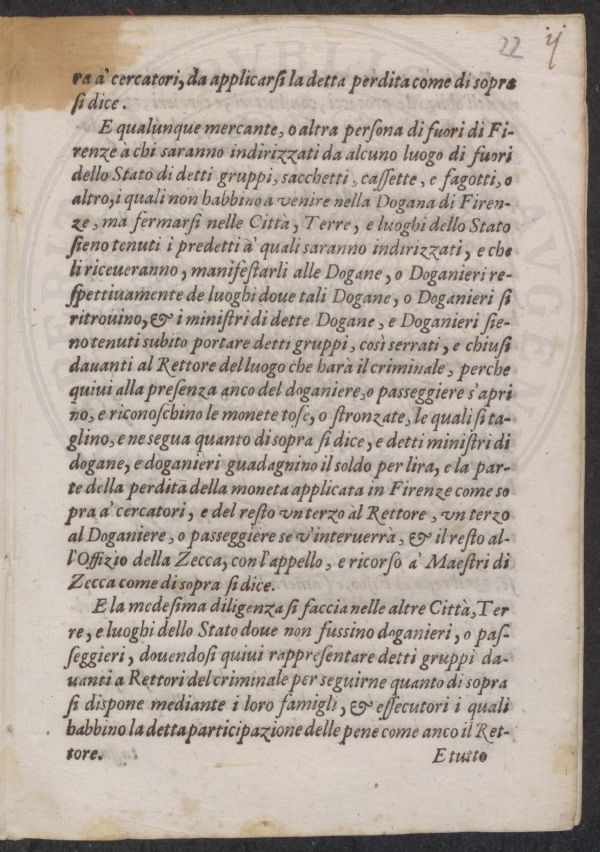 22 ij
ra à cercatori, da applicarsi la detta perdita come di sopra
si dice.
E qualunque mercante, o altra persona di fuori di Fi-
renze à chi saranno indirizzati da alcuno luogo di fuori
dello Stato di detti gruppi, sacchetti, cassette, e fagotti, o
altro, i quali non habbino a venire nella Dogana di Firen-
ze, ma fermarsi nelle Città, Terre, e luoghi dello Stato
sieno tenuti i predetti à quali saranno indirizzati, e che
li riceueranno, manifestarli alle Dogane, o Doganieri re-
spettiuamente de luoghi doue tali Dogane, o Doganieri si
ritrouino, & i ministri di dette Dogane, e Doganieri sie-
no tenuti subito portare detti gruppi, così serrati, e chiusi
dauanti al Rettore del luogo che harà il criminale, perche
quiui alla presenza anco del doganiere, o passeggiere s'apri
no, e riconoschino le monete tose, o stronzate, le quali si ta-
glino, e ne segua quanto di sopra si dice, e detti ministri di
dogane, e doganieri guadagnino il soldo per lira, e la par-
te della perdita della moneta applicata in Firenze come so
pra a' cercatori, e del resto vn terzo al Rettore, vn terzo
al Doganiere, o passeggiere se v'interuerrà, & il resto al-
l'Offizio della Zecca, con l'appello, e ricorso à Maestri di
Zecca come di sopra si dice.
E la medesima diligenza si faccia nelle altre Città, Ter
re, e luoghi dello Stato doue non fussino doganieri, o pas-
seggieri, douendosi quiui rappresentare detti gruppi da-
uanti a Rettori del criminale per seguirne quanto di sopra
si dispone mediante i loro famigli, & essecutori i quali
habbino la detta participazione delle pene come anco il Ret-
tore. E tutto